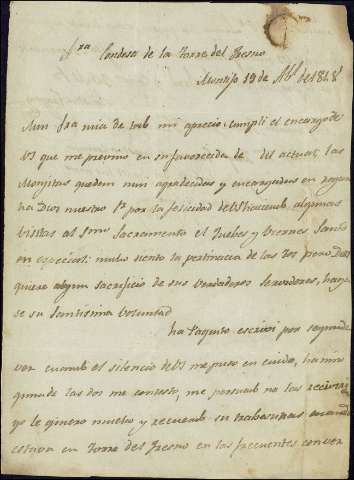 Sra Condesa de la Torre del Fresno
Montijo 19 de Abl de 1818
Muy Sra mia de todo mi aprecio: cumpli el encargo de
VS que me previno en su favorecida de del actual; las
Monjitas quedan mui agradecidas y encargadas en rogar
ha Dios nuestro Sr por la felicidad de VS haciendo algunas
visitas al Smo Sacramento el Juebes y Viernes Santo
en especial: mucho siento la pertinacia de las pero Dios
quiere algun sacrificio de sus verdaderos servidores, hagase
se su Santisima voluntad
ha Paquito escrivi por segunda
vez cuando el silencio de VS me puso en cuidado, ha ninguna
guna de las dos me contesto, me persuado no las recivio
yo le quiero mucho y recuerdo su trabesuras cuando
estava en Torre del Fresno en las frecuentes conver